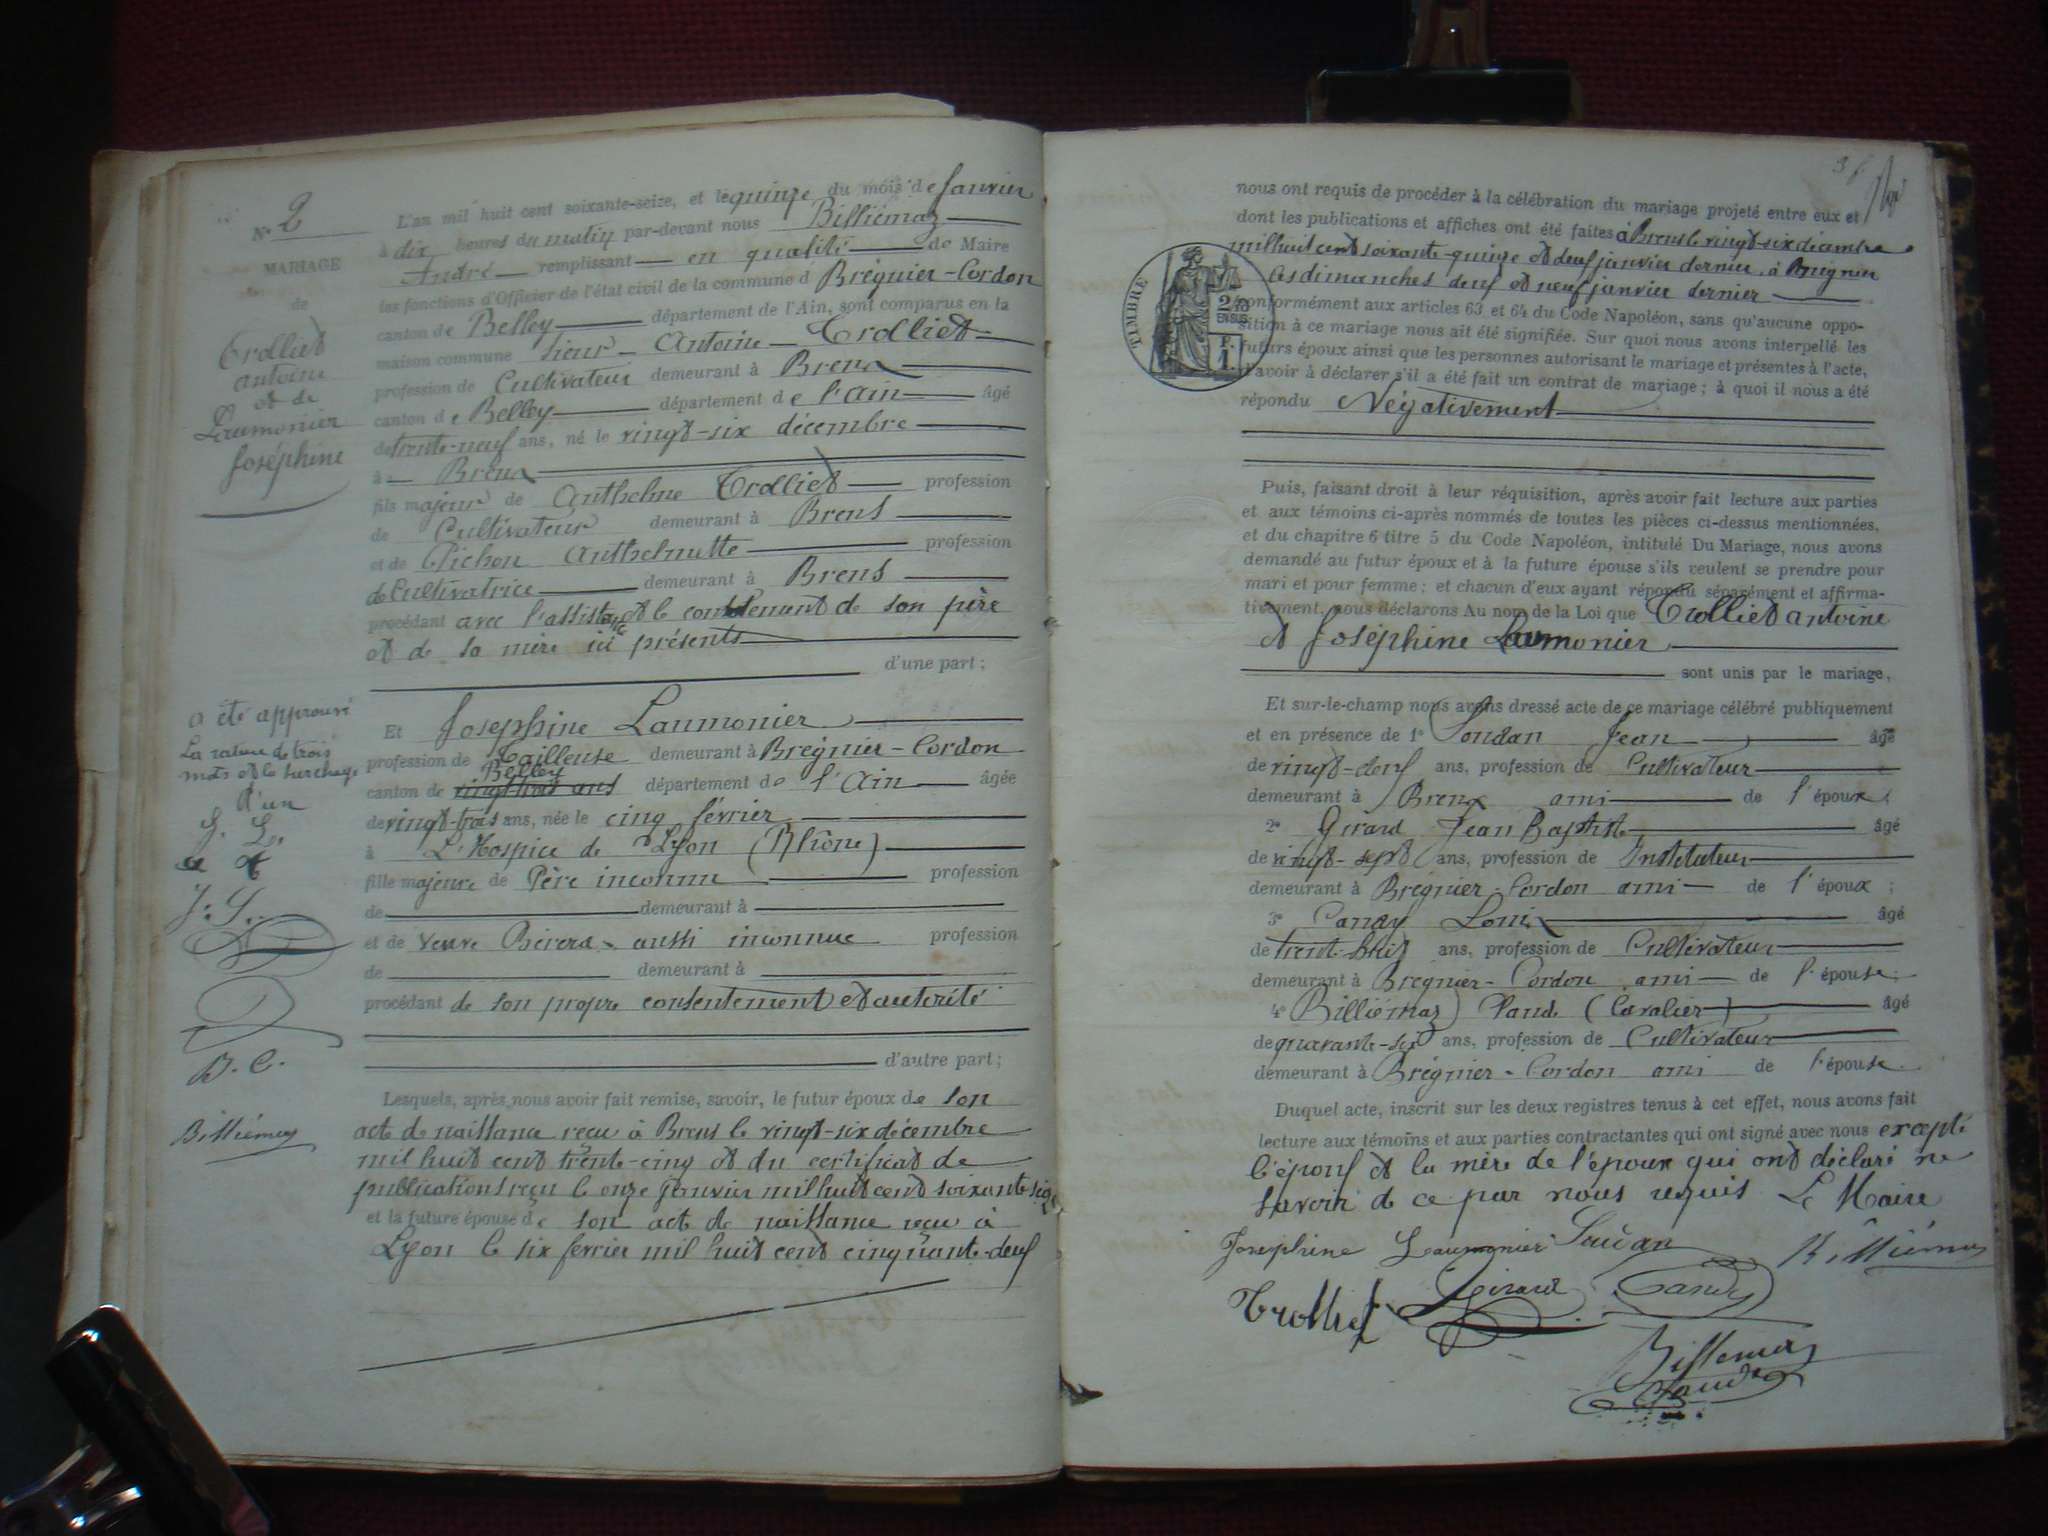 N° 2
MARIAGE
de
Trolliet
antoine
et de
Laumonier
Joséphine
a été approuvé
La rature de trois
mots et la surcharge
d'un
J. L.
a t
J. S.
D. C.
Billiémaz
L'an mil huit cent soixante-seize, et le quinze du mois de Janvier
à dix heures du matin par-devant nous Billiémaz
André remplissant en qualité de Maire
les fonctions d'Officier de l'état civil de la commune d Brégnier-Cordon
canton de Belley département de l'Ain, sont comparus en la
maison commune Sieur Antoine Trolliet
profession de Cultivateur demeurant à Brens
canton de Belley département de l'Ain âgé
de trente-neuf ans, né le vingt-six décembre
à Brens
fils majeur de Anthelme Trolliet profession
de Cultivateur demeurant à Brens
et de Pichon Anthelmette profession
de Cultivatrice demeurant à Brens
procédant avec l'assistance et le consentement de son père
et de sa mère ici présents
d'une part;
Et Josephine Laumonier
profession de Tailleuse demeurant à Brégnier-Cordon
Belley
canton de vingt trois ans département de l'Ain âgée
de vingt-trois ans, née le cinq février
à L'Hospice de Lyon (Rhône)
fille majeure de Père inconnu profession
de demeurant à
et de veuve aussi inconnue profession
de demeurant à
procédant de son propre consentement et autorité
d'autre part;
Lesquels, après nous avoir fait remise, savoir, le futur époux de son
acte de naissance reçu à Brens le vingt-six décembre
mil huit cent trente-cinq et du certificat de
publications reçu le onze janvier mil huit cent soixante-seize
et la future épouse de son acte de naissance reçu à
Lyon le six fevrier mil huit cent cinquante-deux
nous ont requis de procéder à la célébration du mariage projeté entre eux et
dont les publications et affiches ont été faites à Brens le vingt-six décembre
mil huit cent soixante-quinze et deux janvier dernier, à Brégnier
les dimanches deux et neuf janvier dernier
TIMBRE
2/10
EN SUS
F.
1.
conformément aux articles 63 et 64 du Code Napoléon, sans qu'aucune oppo-
sition à ce mariage nous ait été signifiée. Sur quoi nous avons interpellé les
futurs époux ainsi que les personnes autorisant le mariage et présentes à l'acte,
d'avoir à déclarer s'il a été fait un contrat de mariage; à quoi il nous a été
répondu Négativement
Puis, faisant droit à leur réquisition, après avoir fait lecture aux parties
et aux témoins ci-après nommés de toutes les pièces ci-dessus mentionnées,
et du chapitre 6 titre 5 du Code Napoléon, intitulé Du Mariage, nous avons
demandé au futur époux et à la future épouse s'ils veulent se prendre pour
mari et pour femme; et chacun d'eux ayant répondu séparément et affirma-
tivement, nous déclarons Au nom de la Loi que Trolliet antoine
et Joséphine Laumonier
sont unis par le mariage.
Et sur-le-champ nous avons dressé acte de ce mariage célébré publiquement
et en présence de 1° Soudan Jean âgé
de vingt-deux ans, profession de Cultivateur
demeurant à Brens ami de l'époux;
2° Girard Jean Baptiste âgé
de vingt-sept ans, profession de Instituteur
demeurant à Brégnier-Cordon ami de l'époux;
3° Candy Louis âgé
de trente-huit ans, profession de Cultivateur
demeurant à Brégnier-Cordon ami de l'épouse;
4° Billiémaz Claude (Cavalier) âgé
de quarante-six ans, profession de Cultivateur
demeurant à Brégnier-Cordon ami de l'épouse.
Duquel acte, inscrit sur les deux registres tenus à cet effet, nous avons fait
lecture aux témoins et aux parties contractantes qui ont signé avec nous excepté
l'époux et la mère de l'époux qui ont déclaré ne
savoir de ce par nous requis Le Maire
Josephine Laumonier Soudan Billiémaz
Trolliet Girard Candy
Billiemaz
Claude